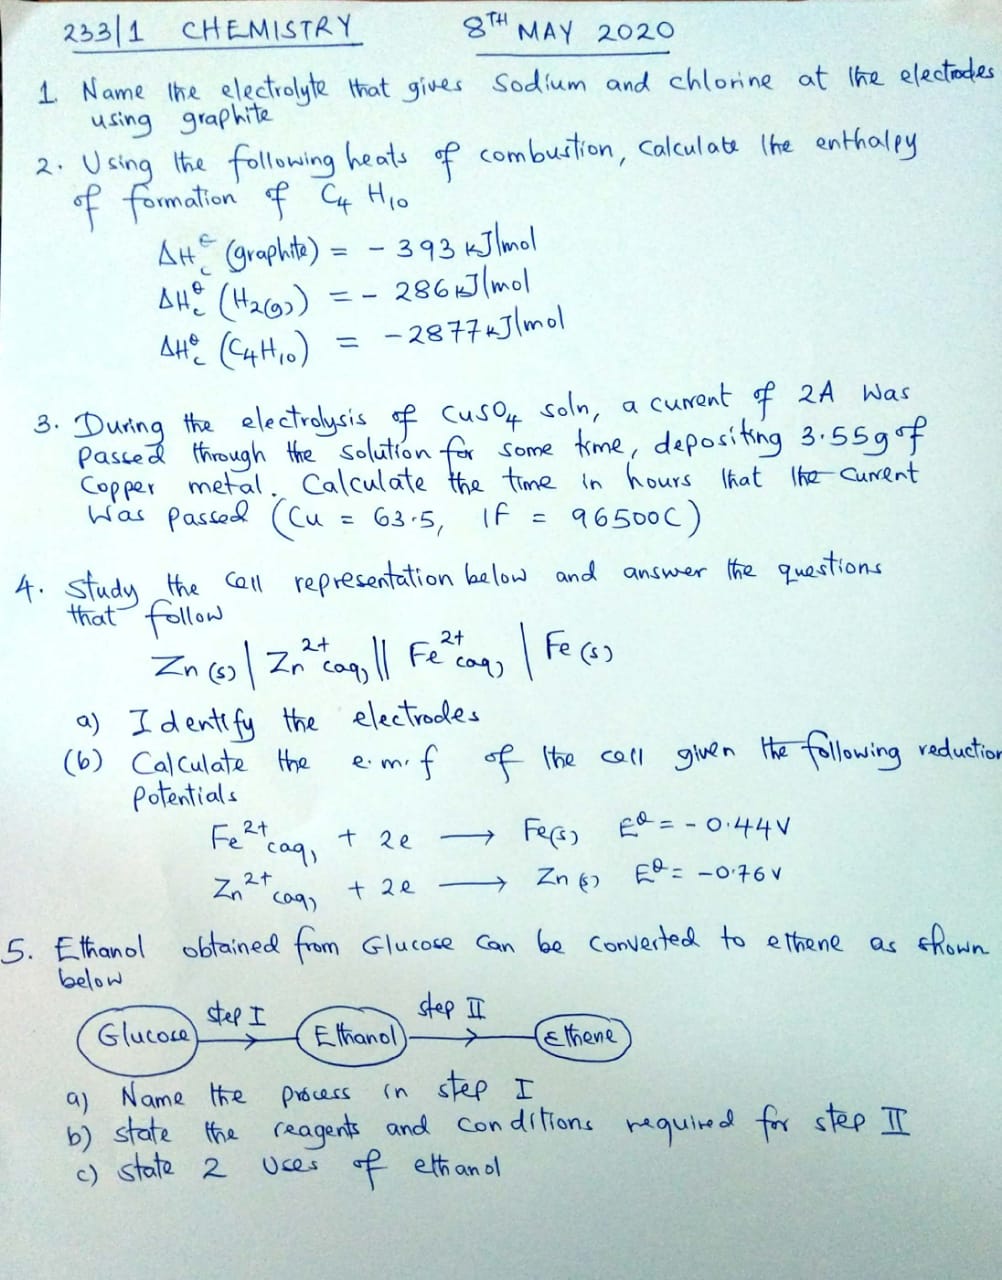 233/1 CHEMISTRY 8TH MAY 2020
1. Name the electrolyte that gives sodium and chlorine at the electrodes
using graphite
2. Using the following heats of combustion, calculate the enthalpy
of formation of C4 H10
ΔHcθ (graphite) = - 393 kJ/mol
ΔHcθ (H2(g)) = - 286 kJ/mol
ΔHcθ (C4H10) = - 2877 kJ/mol
3. During the electrolysis of CuSO4 soln, a current of 2A was
passed through the solution for some time, depositing 3.55g of
Copper metal. Calculate the time in hours that the current
was passed (Cu = 63.5, 1F = 96500C)
4. Study the cell representation below and answer the questions
that follow
Zn(s) | Zn2+(aq) || Fe2+(aq) | Fe(s)
a) Identify the electrodes
(b) Calculate the e.m.f of the cell given the following reduction
potentials
Fe2+(aq) + 2e → Fe(s) Eθ = - 0.44V
Zn2+(aq) + 2e → Zn(s) Eθ = -0.76V
5. Ethanol obtained from Glucose can be converted to ethene as shown
below
Glucose step I Ethanol step II Ethene
a) Name the process in step I
b) state the reagents and conditions required for step II
c) state 2 uses of ethanol